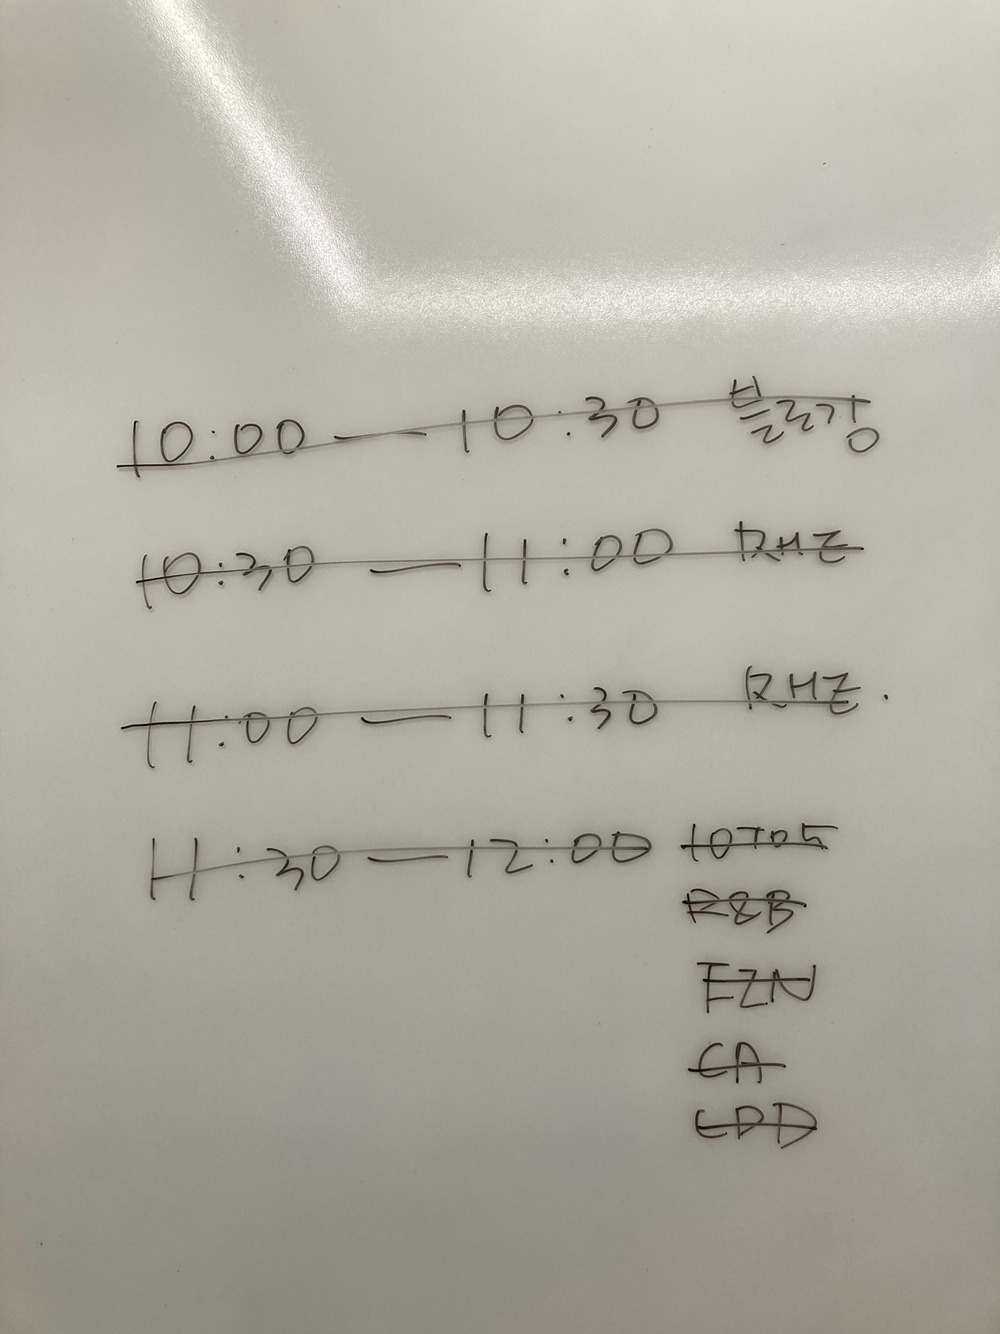 10:00 — 10:30 블로깅
10:30 — 11:00 RHZ
11:00 — 11:30 RHZ.
11:30 — 12:00 10705
R&B
EZN
CA
CDD